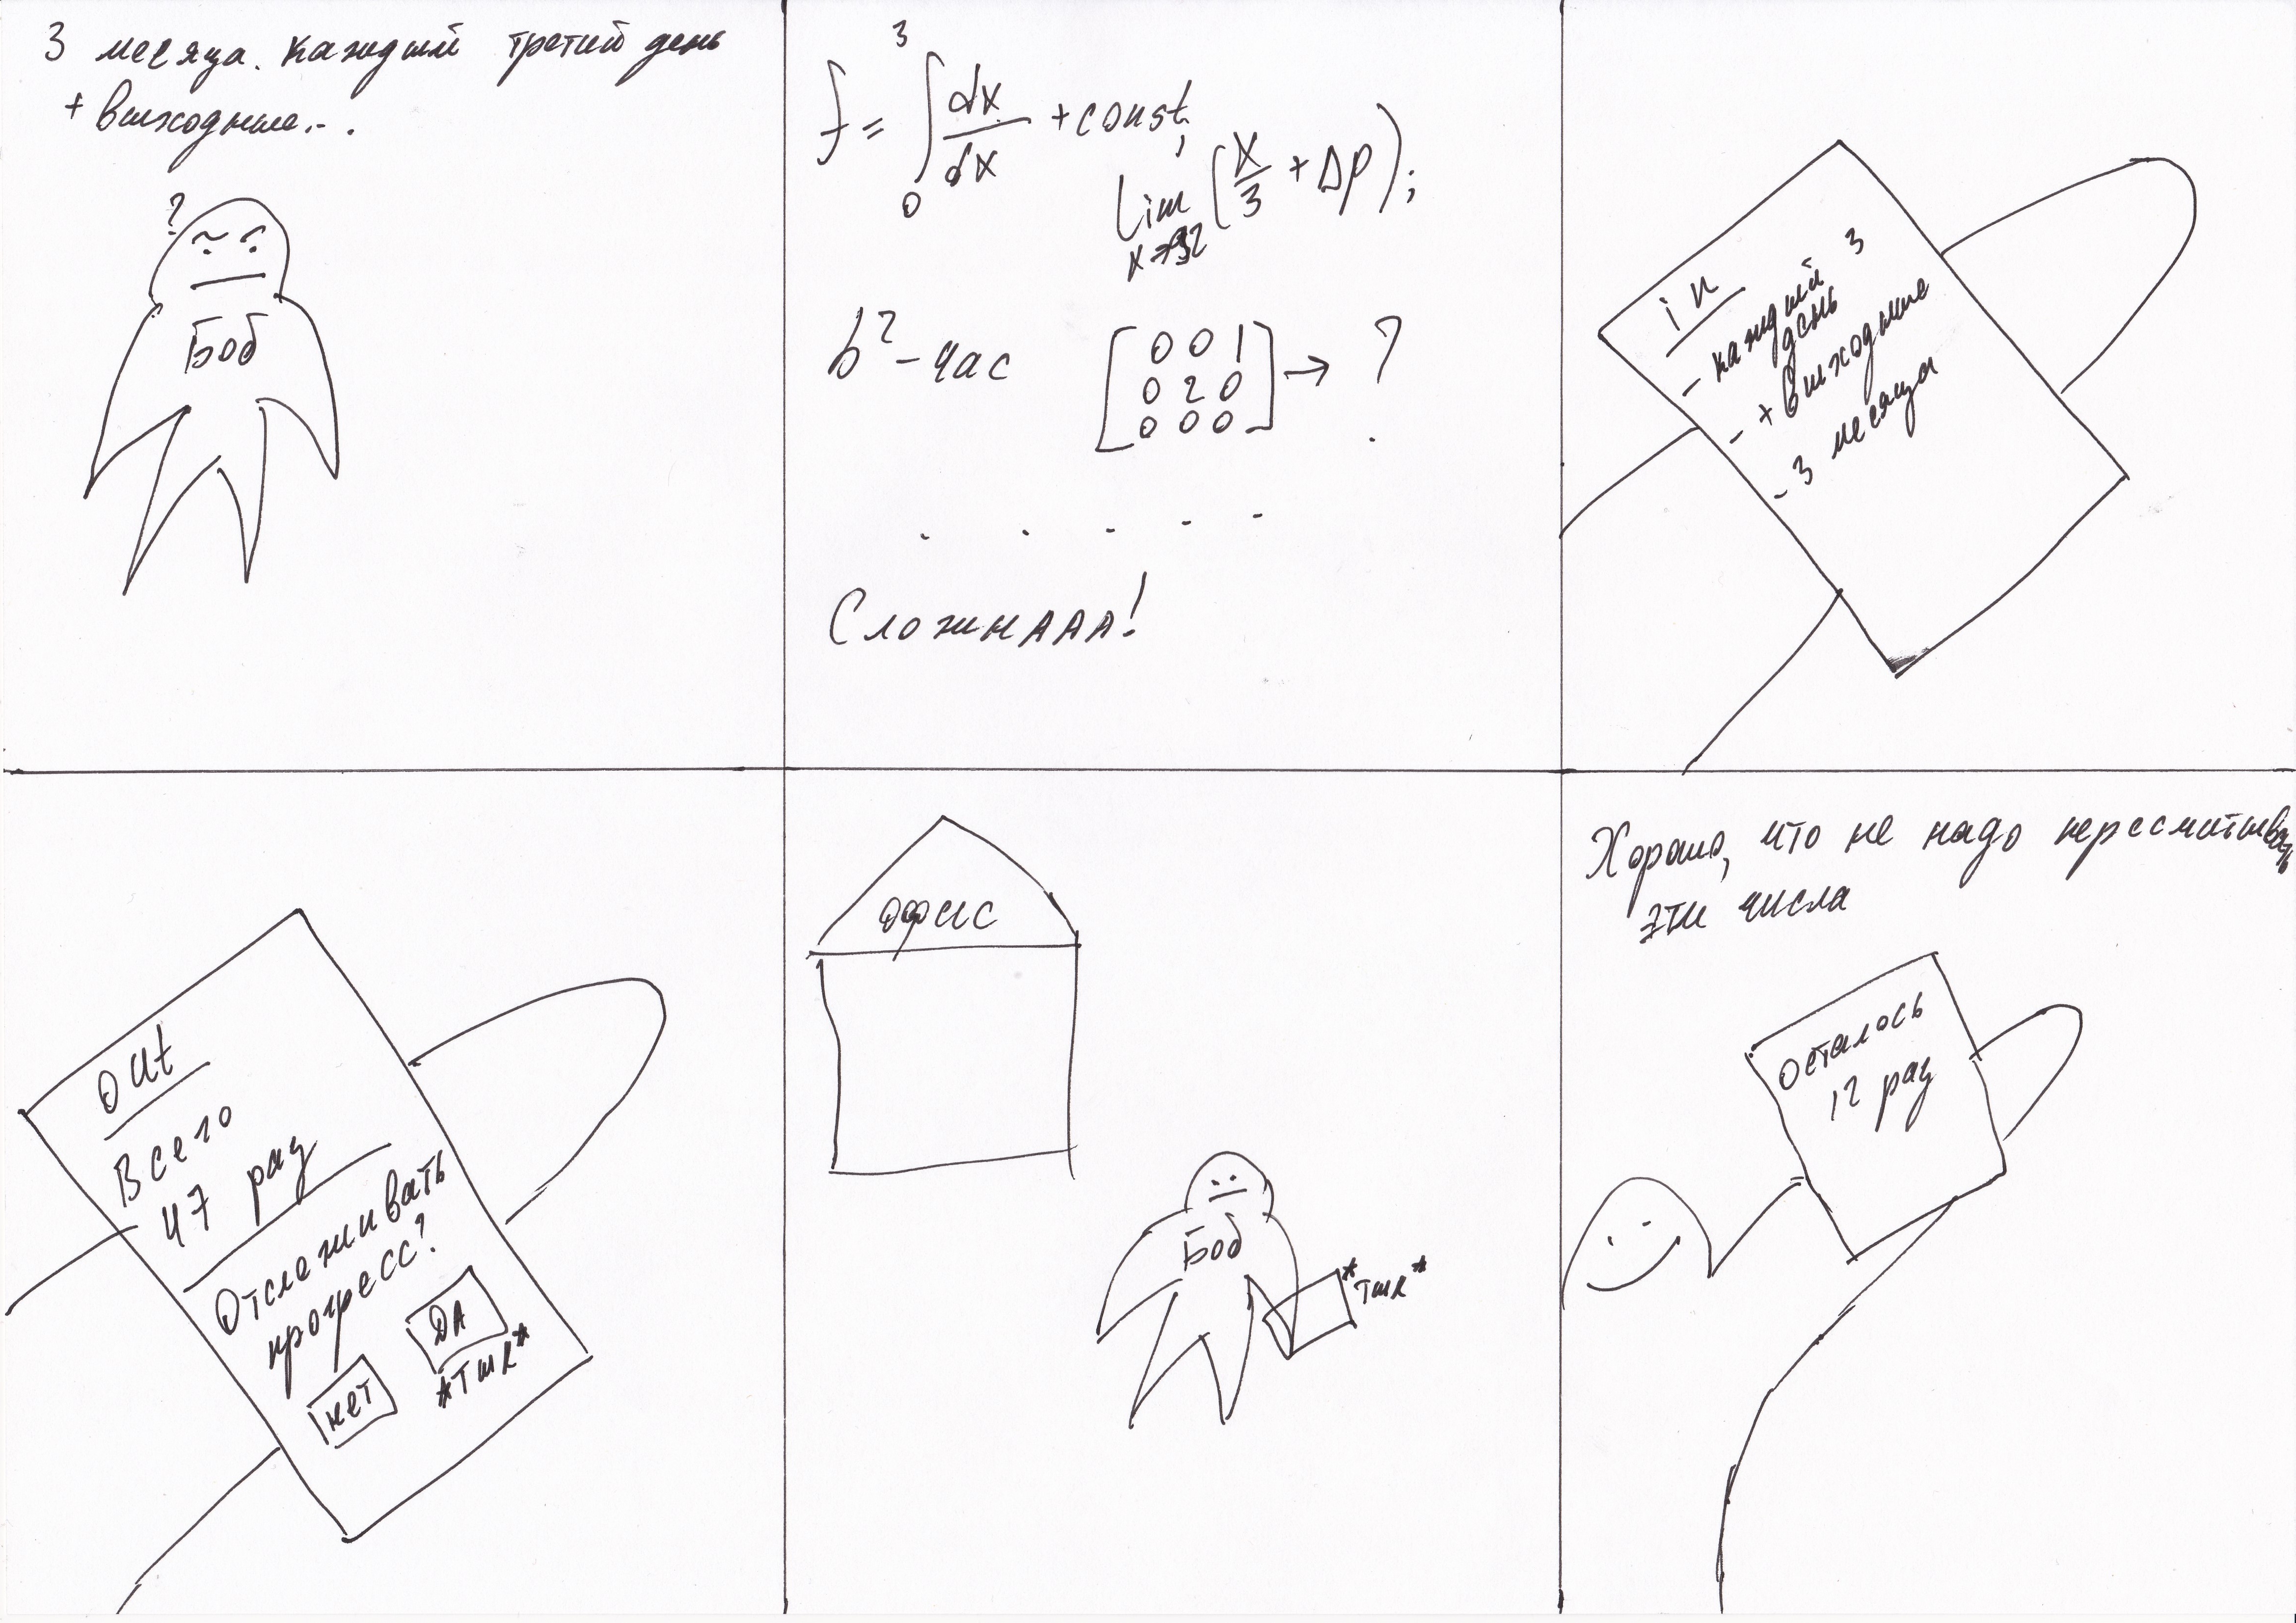 3 месяца. каждый третий день
+ выходные...
?
Боб
3
f = ∫ dx/dx + const,
0
lim (x/3 + Δp);
b² - час
[0 0 1
0 2 0
0 0 0] → ?
. . . . .
СложнААА!
in
- каждый 3
день
- + выходные
- 3 месяца
out
Всего
47 раз
Отслеживать
прогресс?
ДА
нет
*тык*
офис
Боб
*тык*
Хорошо, что не надо
эти числа
Осталось
12 раз